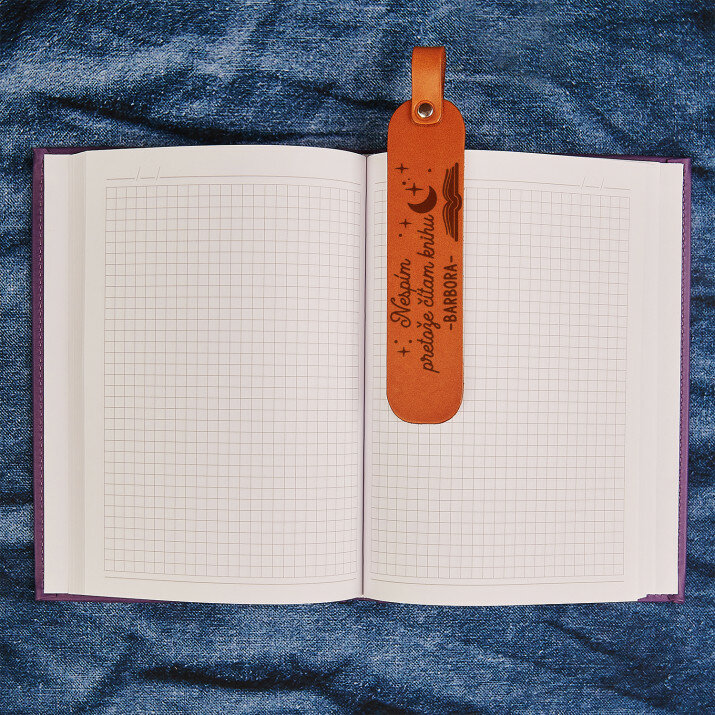 Nespím
pretože čítam knihu
-BARBORA-